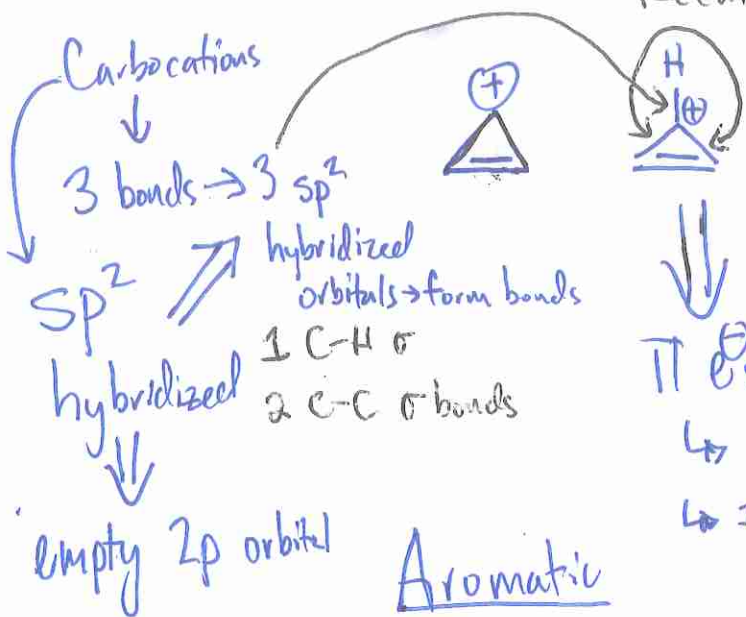 Carbocations
3 bonds → 3 sp²
hybridized
orbitals → form bonds
1 C-H σ
2 C-C σ bonds
sp²
hybridized
empty 2p orbital
+
H
⊕
π e⊖
Aromatic